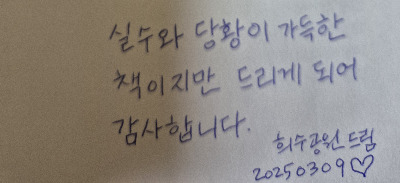 실수와 당황이 가득한
책이지만 드리게 되어
감사합니다.
희수공원 드림
20250309♡